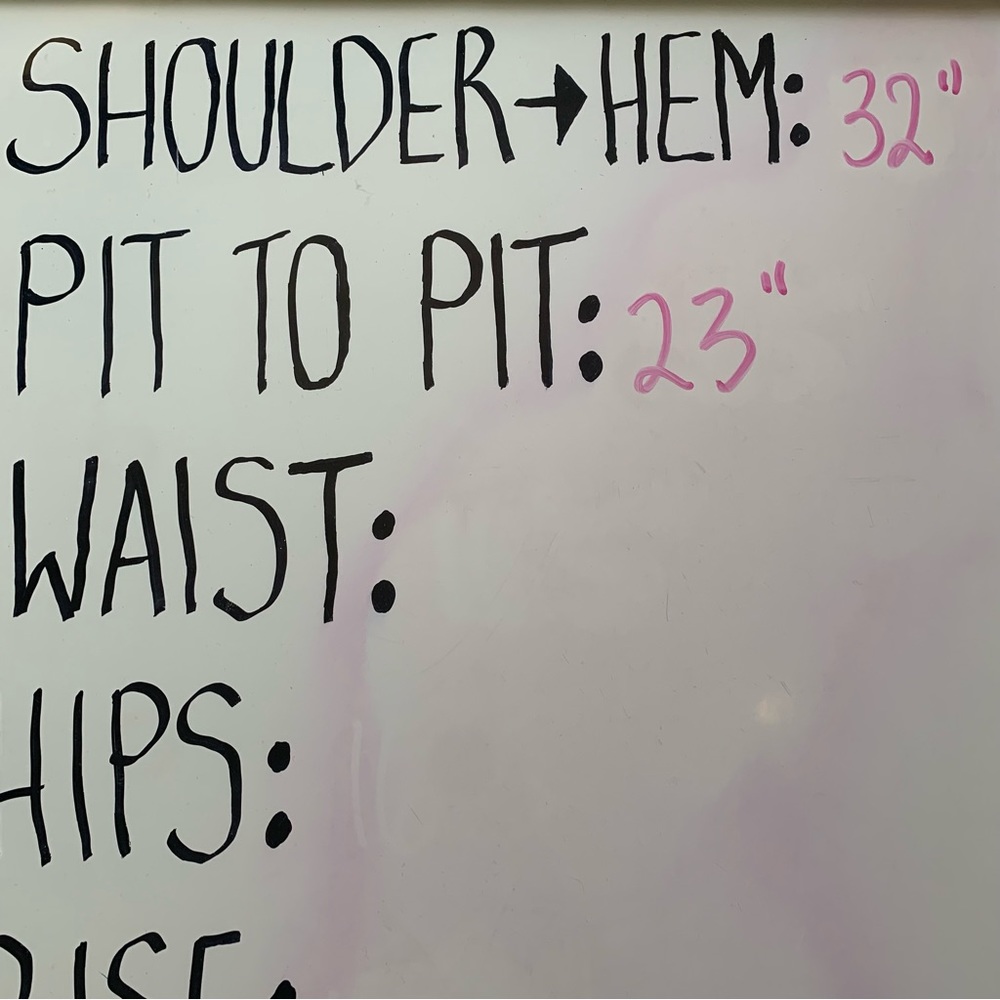 SHOULDER→HEM: 32"
PIT TO PIT: 23"
WAIST:
HIPS:
RISE: